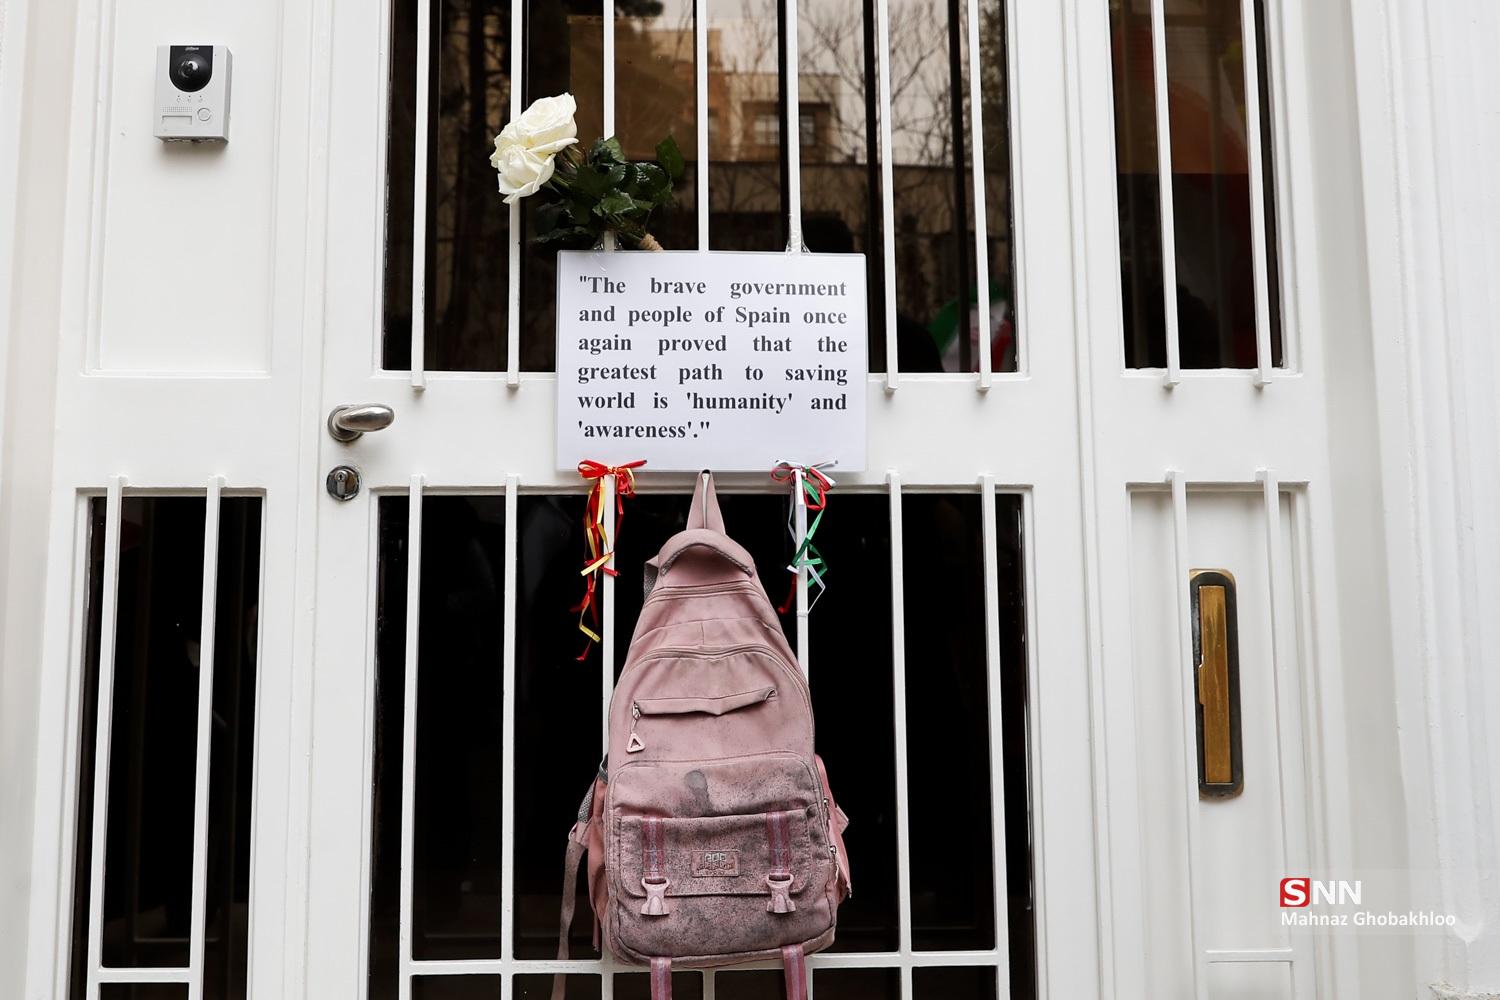 "The brave government
and people of Spain once
again proved that the
greatest path to saving
world is 'humanity' and
'awareness'."
SNN
Mahnaz Ghobakhloo